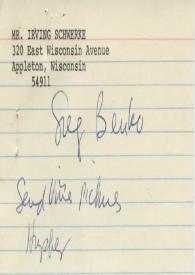 MR. IRVING SCHWERKE
320 East Wisconsin Avenue
Appleton, Wisconsin
54911
Greg Benko
Send